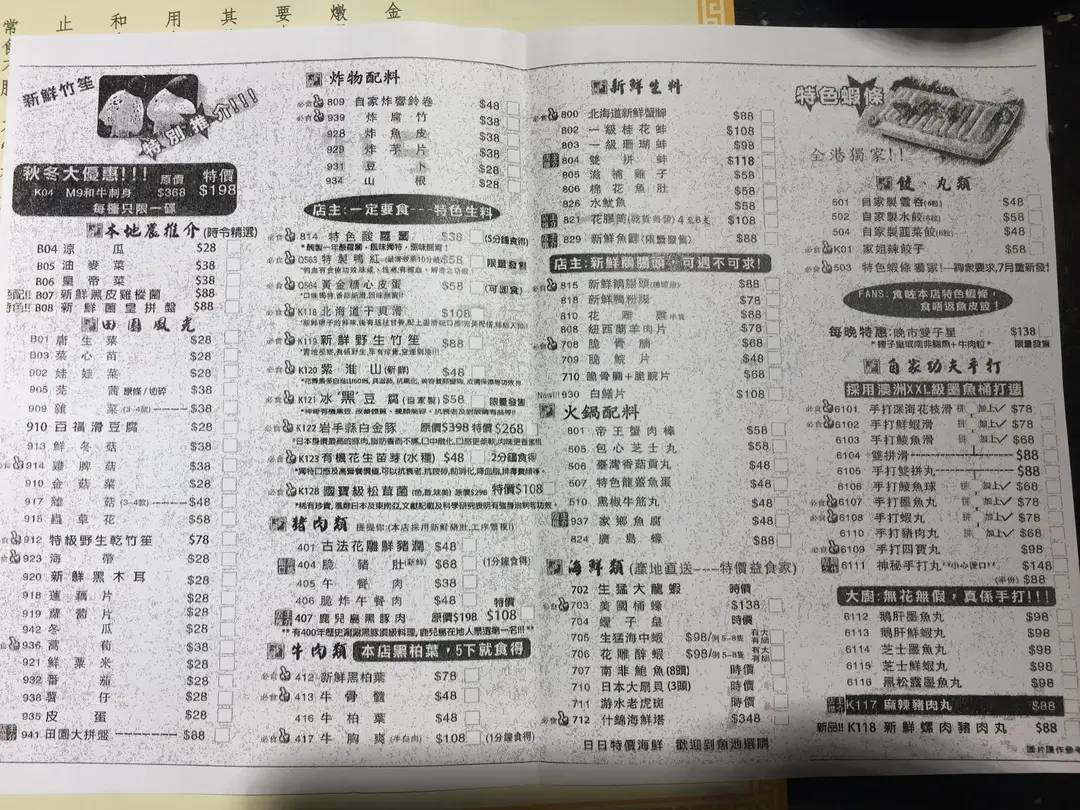 新鮮竹笙
特別推介!!!
秋冬大優惠!!! 原價 特價
K04 M9和牛刺身 $368 $198
每種只限一碟
本地農推介(時令精選)
B04 涼瓜 $28
B05 油麥菜 $38
B06 皇帝菜 $38
B07 新鮮黑皮雞樅菌 $88
B08 新鮮菌皇拼盤 $88
田園風光
B01 唐生菜 $28
B03 菜心苗 $28
902 娃娃菜 $28
905 茼蒿 $38
909 雜菜(3-4款)-------$38
910 百福滑豆腐 $28
913 鮮冬菇 $38
必食 914 雞脾菇 $38
910 金菇菜 $28
917 雜菇(3-4款)-------$48
915 蟲草花 $58
必食 912 特級野生乾竹笙 $78
必食 923 海帶 $28
920 新鮮黑木耳 $28
918 蓮藕片 $28
919 蘿蔔片 $28
942 冬瓜 $28
必食 936 萵筍 $38
921 鮮粟米 $28
932 番茄 $28
938 薯仔 $28
935 皮蛋 $28
941 田園大拼盤----------$88
炸物配料
必食 809 自家炸響鈴卷 $48
必食 939 炸腐竹 $38
928 炸魚皮 $38
929 炸芋片 $38
931 豆卜 $28
934 山根 $28
店主:一定要食---特色生料
必食 814 特色酸蘿蔔 $38 (5分鐘食得)
必食 Q563 特製鴨紅 $58 限量發售
必食 Q564 黃金糖心皮蛋 $58 (可即食)
必食 K118 北海道干貝滑 $108
必食 K119 新鮮野生竹笙 $88
必食 K120 紫淮山(新鮮) $48
必食 K121 冰"黑"豆腐(自家製) $58 限量發售
必食 K122 岩手縣白金豚 原價$398 特價$268
必食 K123 有機花生苗芽(水種) $48 2分鐘食得
必食 K128 國寶級松茸菌 原價$298 特價$108
豬肉類 (本店採用新鮮豬肚,工序繁複!)
401 古法花雕鮮豬潤 $48
404 脆豬肚(新鮮) $68 (1分鐘食得)
405 午餐肉 $38
406 脆炸午餐肉 $48 特價
407 鹿兒島黑豚肉 原價$198 $108
牛肉類 本店黑柏葉,5下就食得
必食 412 新鮮黑柏葉 $78
必食 413 牛骨髓 $48
416 牛柏葉 $48
必食 417 牛胸爽 $108 (1分鐘食得)
新鮮生料
必食 800 北海道新鮮蟹腳 $88
802 一級桂花蚌 $108
803 一級珊瑚蚌 $98
804 雙拼蚌 $118
805 滋補雞子 $58
806 棉花魚肚 $58
826 水魷魚 $58
821 花膠筒 4至6支 $108
829 新鮮魚䱽(限量發售) $58
店主:新鮮鵝腸頭,可遇不可求!
必食 815 新鮮鵝腸頭 $88
818 新鮮鴨粉腸 $78
810 花 $88
808 紐西蘭羊肉片 $78
必食 708 脆骨腩 $68
709 脆鯇片 $48
710 脆骨腩+脆鯇片 $68
930 白鱔片 $108
火鍋配料
801 帝王蟹肉棒 $58
505 包心芝士丸 $58
506 臺灣香菇貢丸 $48
507 特色龍蝦魚蛋 $48
510 黑椒牛筋丸 $48
937 家鄉魚腐 $48
824 廣島蠔 $88
海鮮類(產地直送---特價益食家)
702 生猛大龍蝦 時價
必食 703 美國桶蠔 $138
704 蟶子皇 時價
705 生猛海中蝦 $98/例 5-8隻
706 花雕醉蝦 $98/例 5-8隻
707 南非鮑魚(8頭) 時價
710 日本大扇貝(3頭) 時價
711 游水老虎斑 時價
必食 712 什錦海鮮塔 $348
日日特價海鮮 歡迎到魚池選購
特色蝦條
全港獨家!!
餃、丸類
501 自家製雲吞(6粒) $48
502 自家製水餃(6粒) $58
504 自家製韮菜餃(6粒) $48
必食 K01 家姐辣餃子 $58
必食 503 特色蝦條獨家!--詢衆要求,7月重新發售
FANS:食咗本店特色蝦條,
食唔返魚皮餃!
每晚特惠:晚市雙子星 $138
限量發售
自家功夫手打
採用澳洲XXL級墨魚桶打造
必食 6101 手打深海花枝滑 拼 加上✓ $78
必食 6102 手打鮮蝦滑 拼 加上✓ $78
6103 手打鯪魚滑 拼 加上✓ $68
6104 雙拼滑-------------------$88
6105 手打雙拼丸---------------$88
6106 手打鯪魚球 拼 加上✓ $68
必食 6107 手打墨魚丸 拼 加上✓ $78
必食 6108 手打蝦丸 拼 加上✓ $78
6110 手打豬肉丸 拼 加上✓ $68
必食 6109 手打四寶丸 $98
6111 神秘手打丸 **小心燙口** $148
(半份) $88
大廚:無花無假,真係手打!!!
6112 鵝肝墨魚丸 $98
6113 鵝肝鮮蝦丸 $98
6114 芝士墨魚丸 $98
6115 芝士鮮蝦丸 $98
6116 黑松露墨魚丸 $98
K117 麻辣豬肉丸 $88
新品!! K118 新鮮螺肉豬肉丸 $88